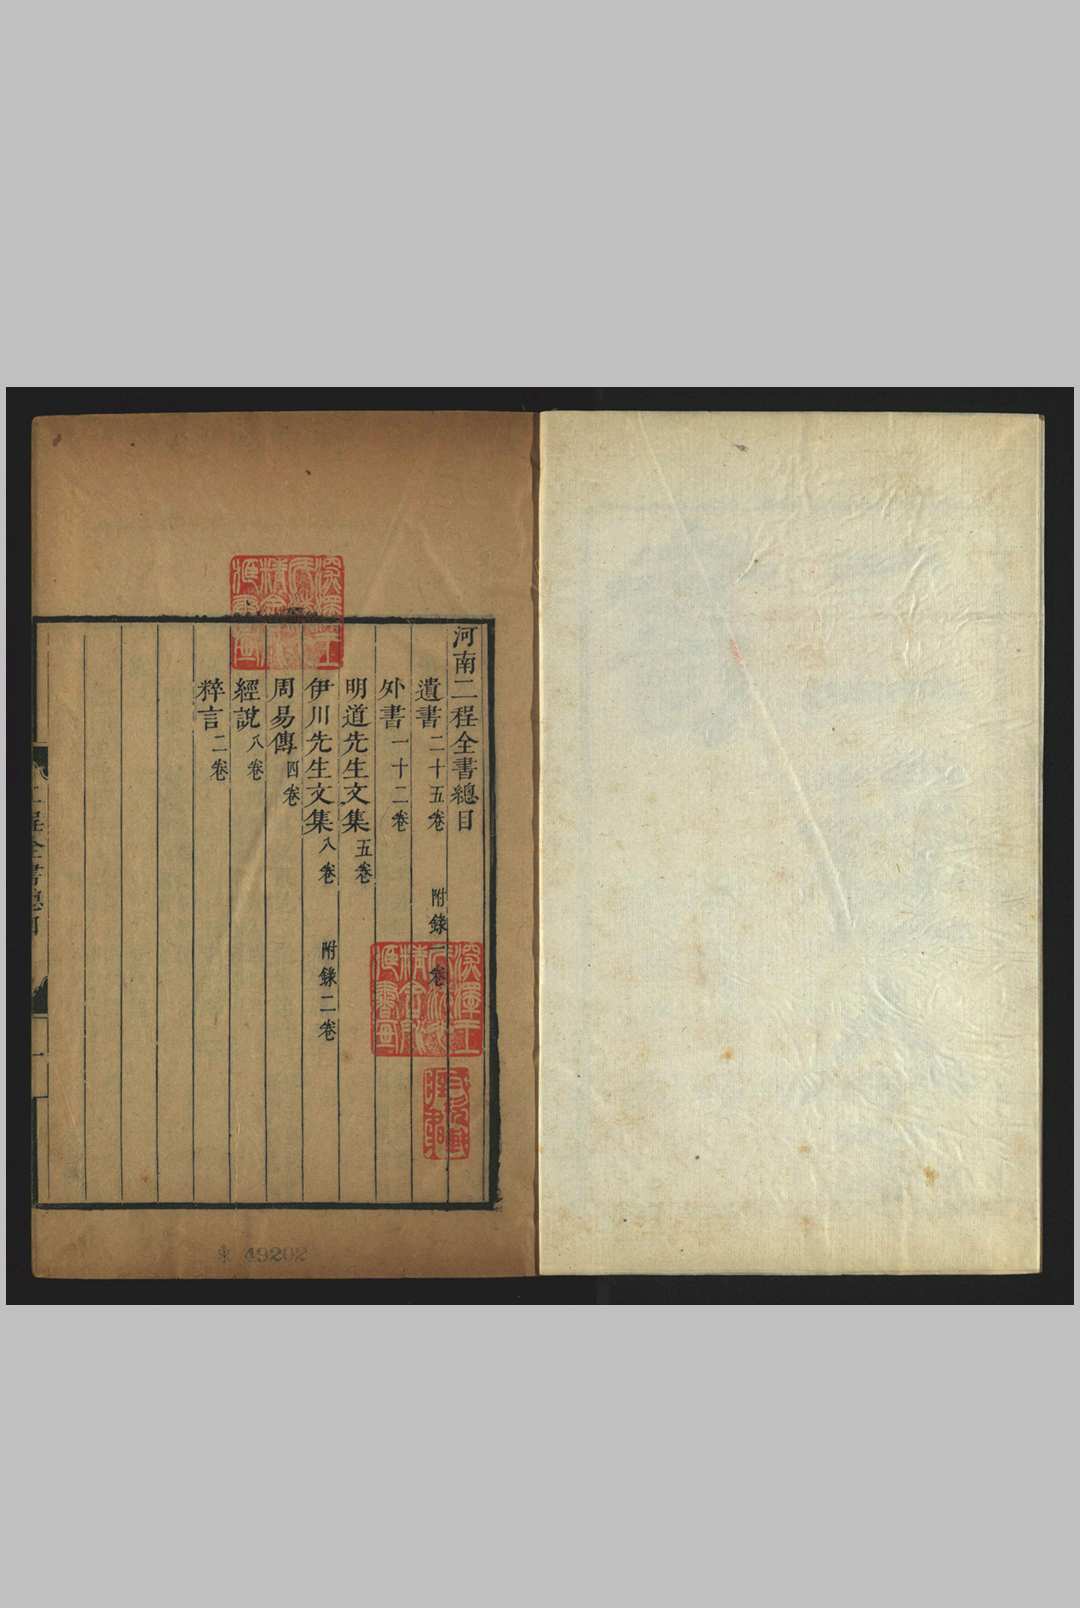 河南二程全書總目
遺書二十五卷 附錄一卷
外書一十二卷
明道先生文集五卷
伊川先生文集八卷 附錄二卷
周易傳四卷
經說八卷
粹言二卷
二程全書總目
一
東 49202